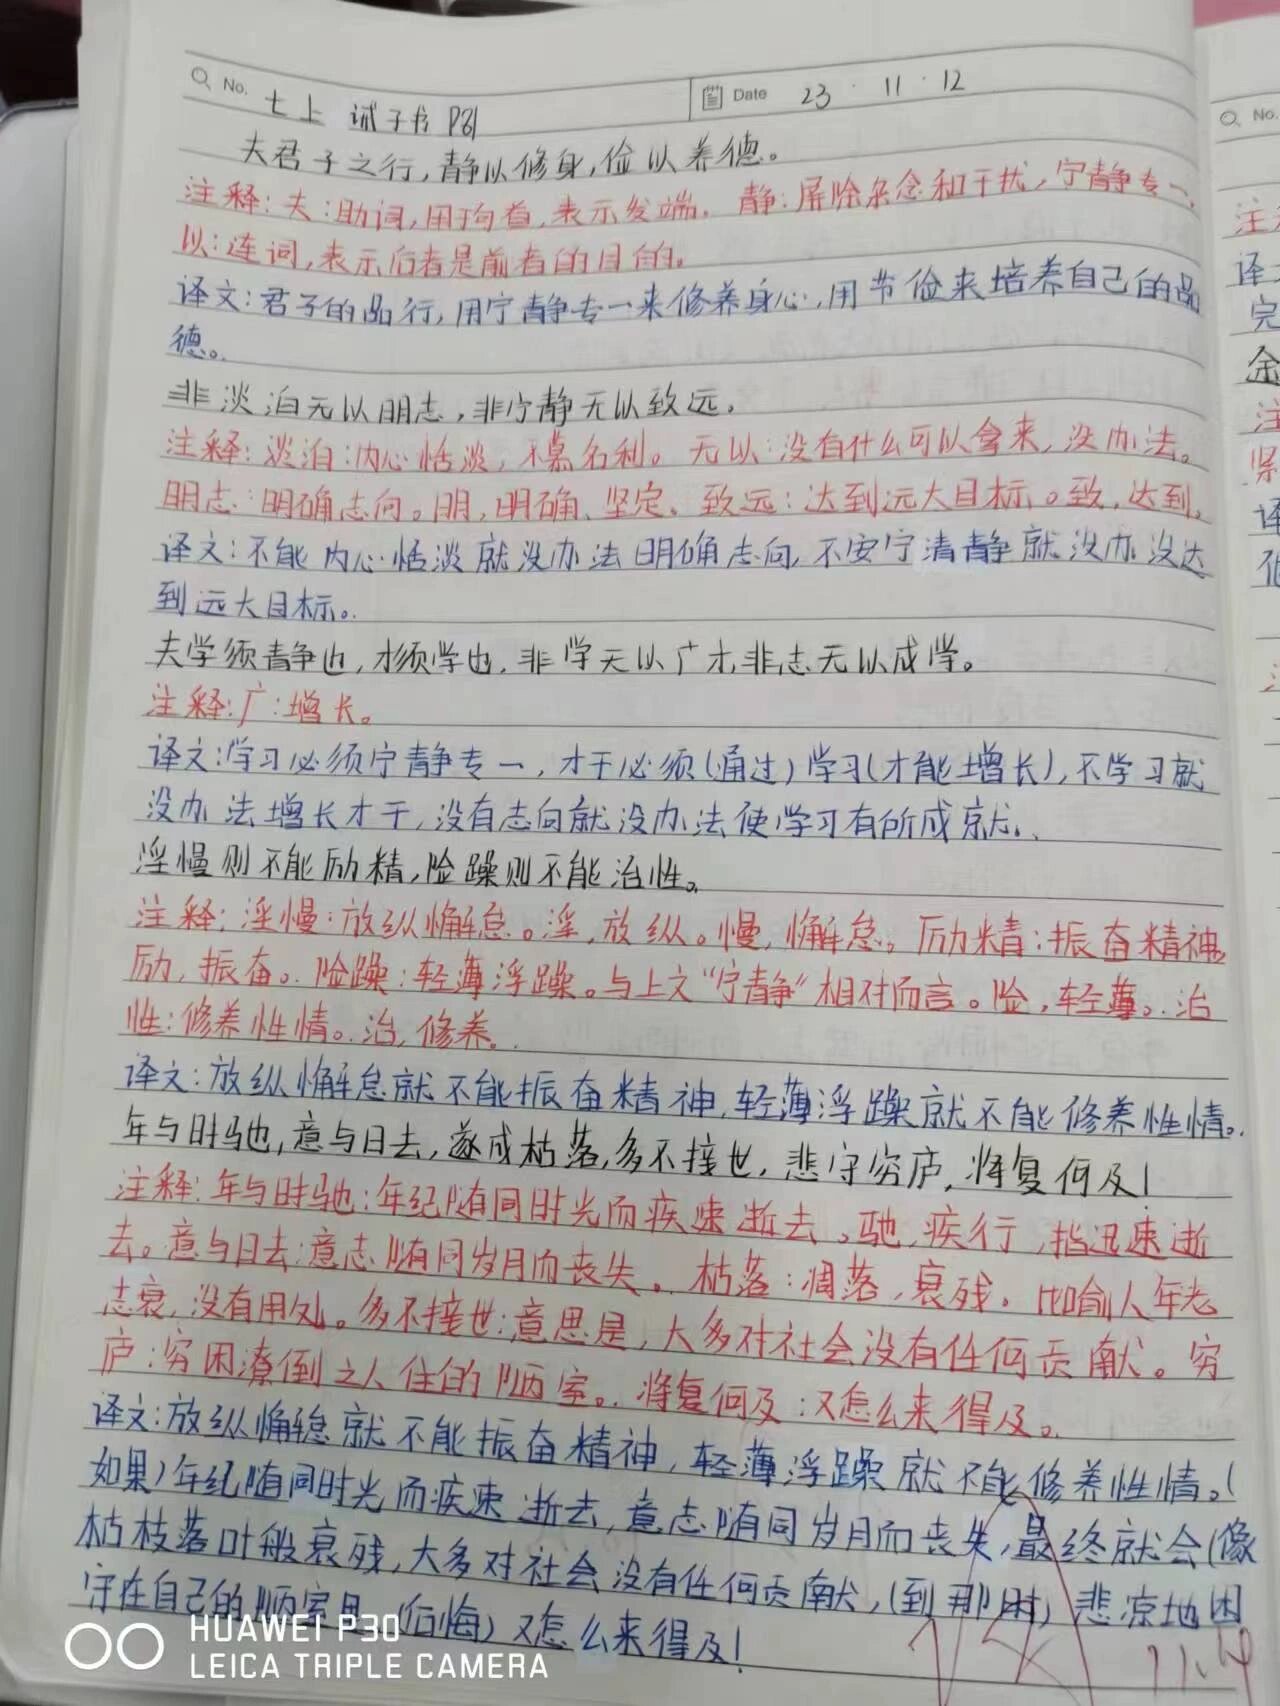 No. 七上 诫子书 P81
Date 23·11·12
夫君子之行，静以修身，俭以养德。
注释：夫：助词，用于句首，表示发端。静：屏除杂念和干扰，宁静专一，
以：连词，表示后者是前者的目的。
译文：君子的品行，用宁静专一来修养身心，用节俭来培养自己的品
德。
非淡泊无以明志，非宁静无以致远。
注释：淡泊：内心恬淡，不慕名利。无以：没有什么可以拿来，没办法。
明志：明确志向。明，明确、坚定。致远：达到远大目标。致，达到。
译文：不能内心恬淡就没办法明确志向，不安宁清静就没办没达
到远大目标。
夫学须静也，才须学也，非学无以广才，非志无以成学。
注释：广：增长。
译文：学习必须宁静专一，才干必须（通过）学习（才能增长），不学习就
没办法增长才干，没有志向就没办法使学习有所成就。
淫慢则不能励精，险躁则不能治性。
注释：淫慢：放纵懈怠。淫，放纵。慢，懈怠。励精：振奋精神。
励，振奋。险躁：轻薄浮躁。与上文“宁静”相对而言。险，轻薄。治
性：修养性情。治，修养。
译文：放纵懈怠就不能振奋精神，轻薄浮躁就不能修养性情。
年与时驰，意与日去，遂成枯落，多不接世，悲守穷庐，将复何及！
注释：年与时驰：年纪随同时光而疾速逝去。驰，疾行，指迅速逝
去。意与日去：意志随同岁月而丧失。枯落：凋落，衰残。比喻人年老
志衰，没有用处。多不接世：意思是，大多对社会没有任何贡献。穷
庐：穷困潦倒之人住的陋室。将复何及：又怎么来得及。
译文：放纵懈怠就不能振奋精神，轻薄浮躁就不能修养性情。（
如果）年纪随同时光而疾速逝去，意志随同岁月而丧失，最终就会（像
枯枝落叶般衰残，大多对社会没有任何贡献，（到那时）悲凉地困
守在自己的陋室里，（后悔）又怎么来得及！
11.14
HUAWEI P30
LEICA TRIPLE CAMERA
No.